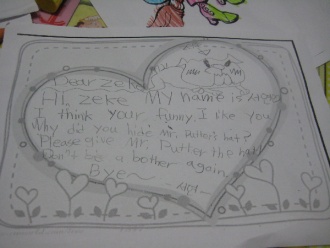 Dear Zeke
Hi, Zeke My name is
I think your funny. I like you
Why did you hide Mr. Putter's hat?
Please give Mr. Putter the hat
Don't be a bother again
Bye~